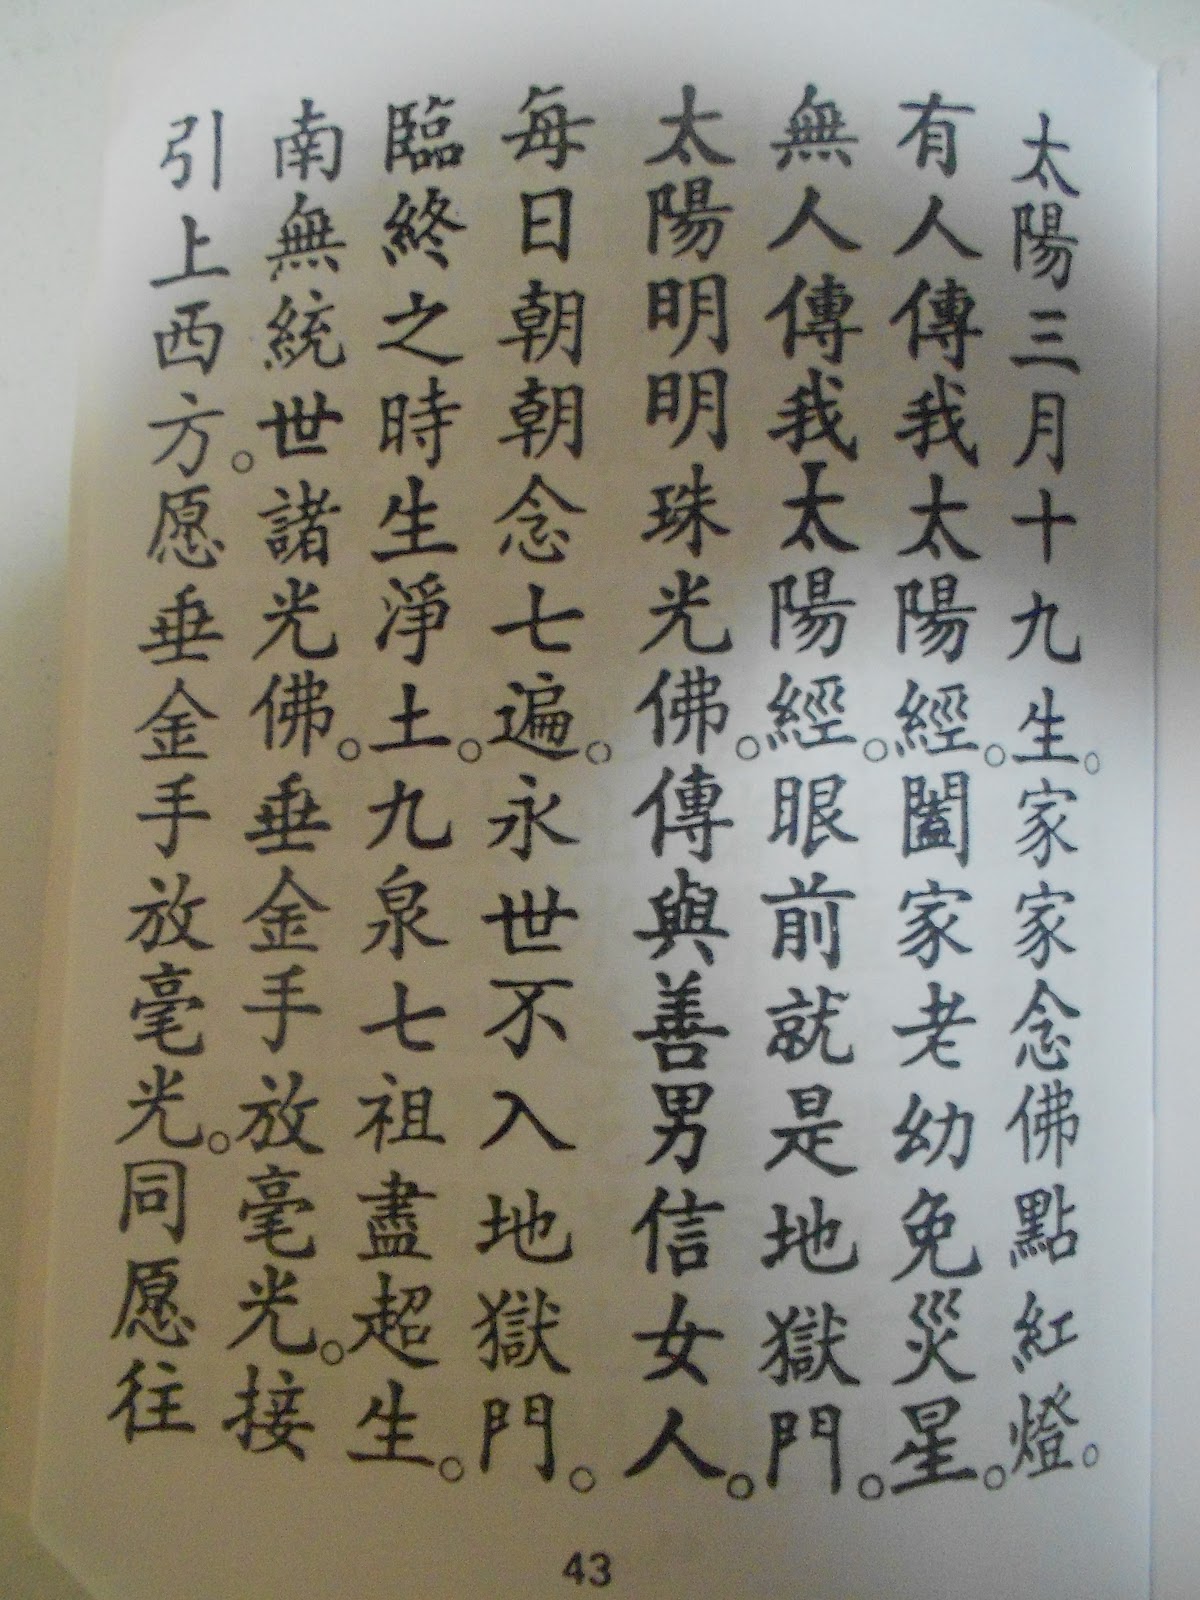 太陽三月十九生。家家念佛點紅燈。
有人傳我太陽經。闔家老幼免災星。
無人傳我太陽經。眼前就是地獄門。
太陽明明珠光佛。傳與善男信女人。
每日朝朝念七遍。永世不入地獄門。
臨終之時生淨土。九泉七祖盡超生。
南無統世諸光佛。垂金手放毫光。接
引上西方。愿垂金手放毫光。同愿往
43